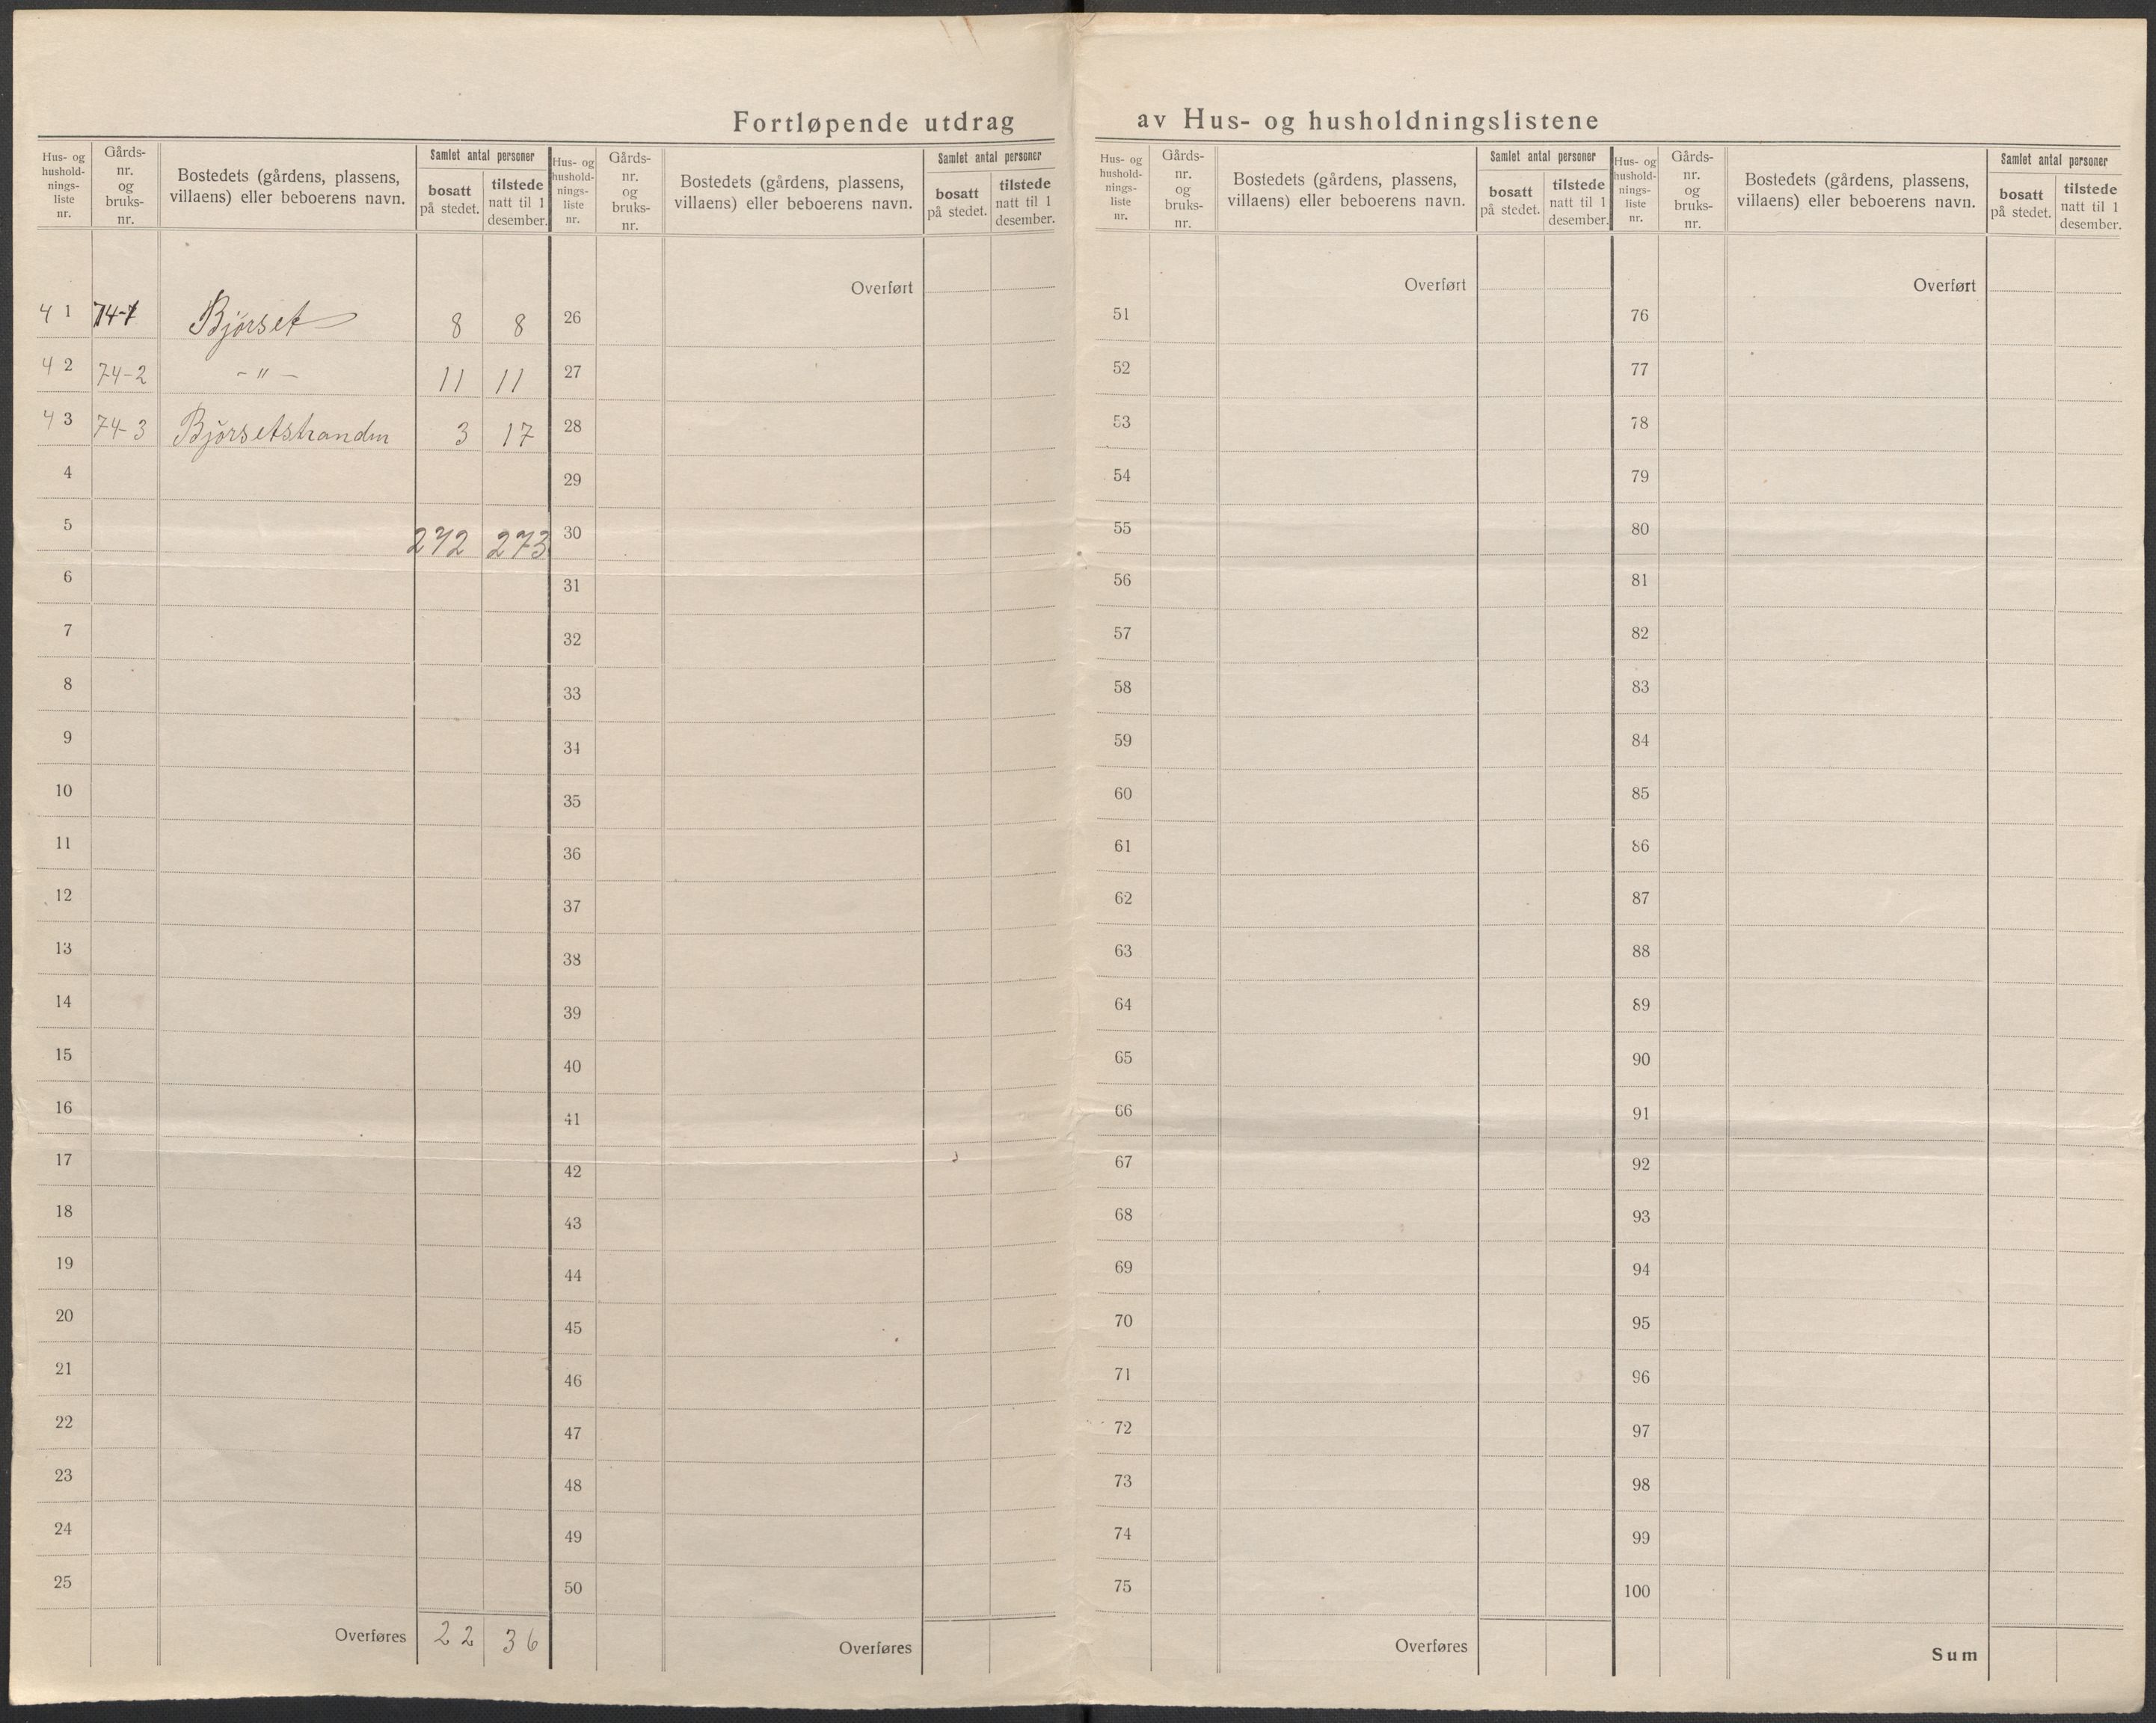 Fortløpende utdrag av Hus- og husholdningslistene
Hus- og hushold-nings-liste nr. Gårds-nr. og bruks-nr. Bostedets (gårdens, plassens, villaens) eller beboerens navn. Samlet antal personer bosatt på stedet. tilstede natt til 1 desember.
41 74-1 Bjørset 8 8
42 74-2 - " - 11 11
43 74-3 Bjørsetstranden 3 17
4
5 272 273
6
7
8
9
10
11
12
13
14
15
16
17
18
19
20
21
22
23
24
25
Overføres 22 36
Hus- og hushold-nings-liste nr. Gårds-nr. og bruks-nr. Bostedets (gårdens, plassens, villaens) eller beboerens navn. Samlet antal personer bosatt på stedet. tilstede natt til 1 desember.
Overført
26
27
28
29
30
31
32
33
34
35
36
37
38
39
40
41
42
43
44
45
46
47
48
49
50
Overføres
Hus- og hushold-nings-liste nr. Gårds-nr. og bruks-nr. Bostedets (gårdens, plassens, villaens) eller beboerens navn. Samlet antal personer bosatt på stedet. tilstede natt til 1 desember.
Overført
51
52
53
54
55
56
57
58
59
60
61
62
63
64
65
66
67
68
69
70
71
72
73
74
75
Overføres
Hus- og hushold-nings-liste nr. Gårds-nr. og bruks-nr. Bostedets (gårdens, plassens, villaens) eller beboerens navn. Samlet antal personer bosatt på stedet. tilstede natt til 1 desember.
Overført
76
77
78
79
80
81
82
83
84
85
86
87
88
89
90
91
92
93
94
95
96
97
98
99
100
Sum